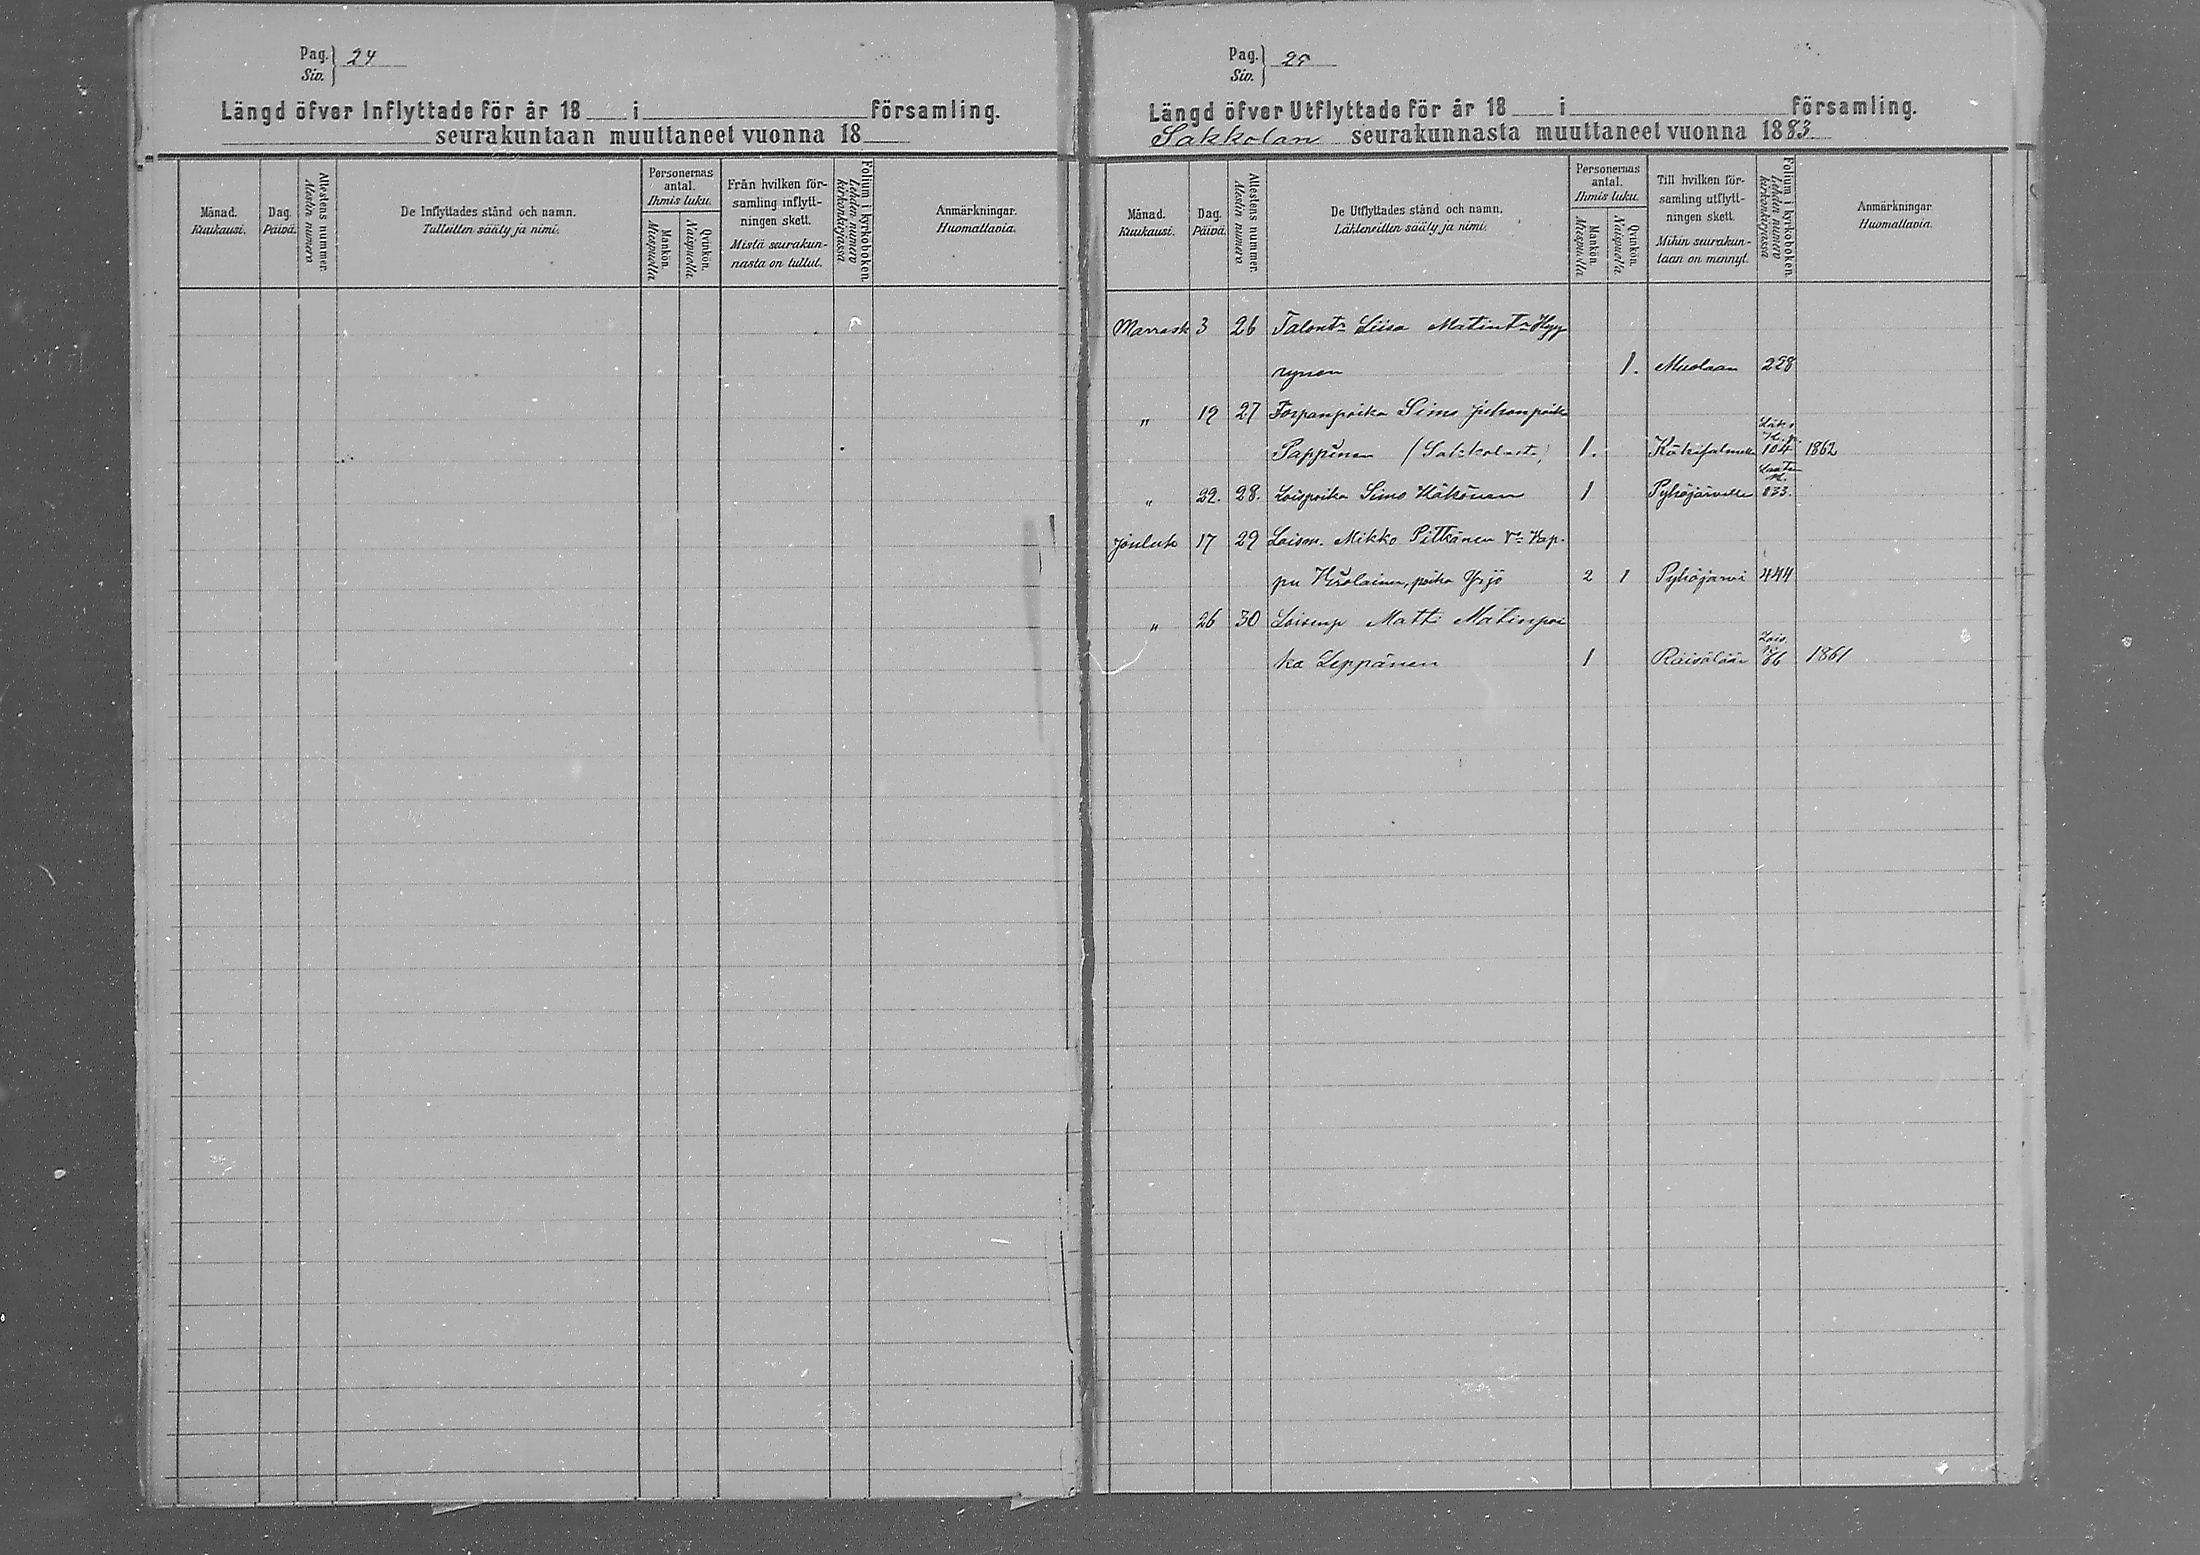 Pag. 24
Siv.
Längd öfver Inflyttade för år 18 i församling.
seurakuntaan muuttaneet vuonna 18
Månad. Kuukausi.
Dag. Päivä.
Attestens nummer. Atestin numero
De Inflyttades stånd och namn. Tulleitten sääty ja nimi.
Personernas antal. Ihmis luku.
Mankön. Miespuolia
Qvinkön. Naispuolia
Från hvilken församling inflyttningen skett. Mistä seurakunnasta on tullut.
Folium i kyrkoboken. Lehden numero kirkonkirjassa
Anmärkningar. Huomattavia.
Pag. 25
Siv.
Längd öfver Utflyttade för år 18 i församling.
Sakkolan seurakunnasta muuttaneet vuonna 1883
Månad. Kuukausi.
Dag. Päivä.
Attestens nummer. Atestin numero
De Utflyttades stånd och namn. Lähteneitten sääty ja nimi.
Personernas antal. Ihmis luku.
Mankön. Miespuolia
Qvinkön. Naispuolia
Till hvilken församling utflyttningen skett. Mihin seurakuntaan on mennyt.
Folium i kyrkoboken. Lehden numero kirkonkirjassa
Anmärkningar Huomattavia.
Marrask 3 26 Talontr Liisa Matintr Hyy
rynen 1. Muolaan 258
" 12 27 Torpanpoika Simo Juhonpoika
Pappinen (Sakkolasta) 1. Käkisalmelle 104 1862
" 22. 28. Loispoika Simo Käkönen 1 Pyhäjärvelle 833.
Jouluk 17 29 Loism. Mikko Pitkänen Vo Kap-
pu Kiolainen, poika Yrjö 2 1 Pyhäjärvi 444
" 26 30 Loismp Matti Matinpoi
ka Leppänen 1 Räisälään 66 1861